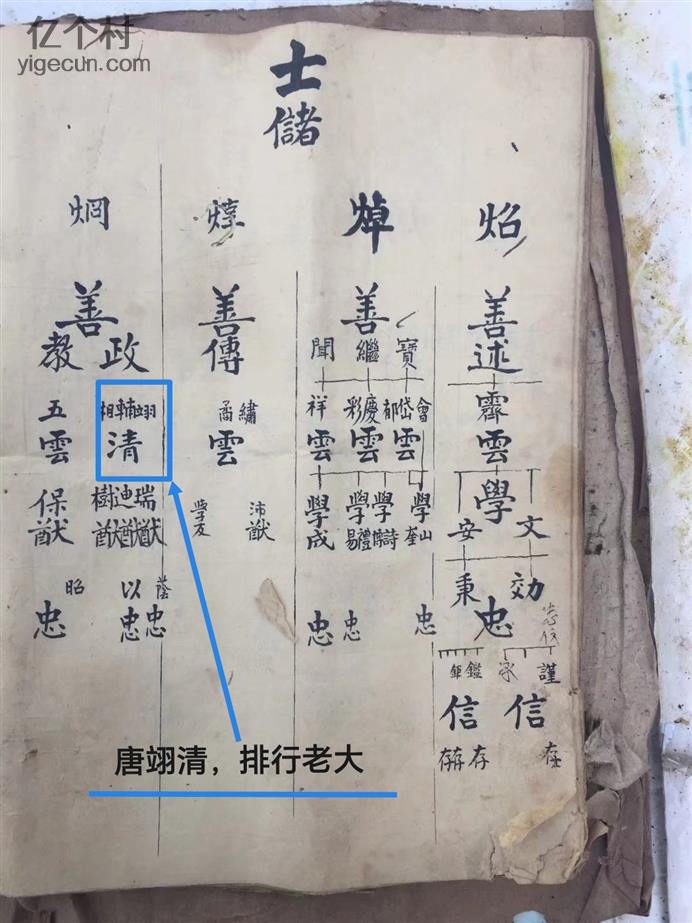 亿个村
yigecun.com
士
儲
炤
焯
焞
烱
善
述
善
寶
繼
聞
善
傳
善
政
教
霽
雲
會
岱
都
慶
彩
祥
雲
雲
雲
繡
矞
雲
翊輔相
清
五
雲
學
文
安
學
山
奎
學
詩
學
禮
易
學
成
沛
猷
學
友
瑞迪樹
猷猷猷
保
猷
効
秉
忠
忠
忠
忠
蔭
以
忠忠
昭
忠
謹
鑑
鉅
信
信
存
存
唐翊清，排行老大